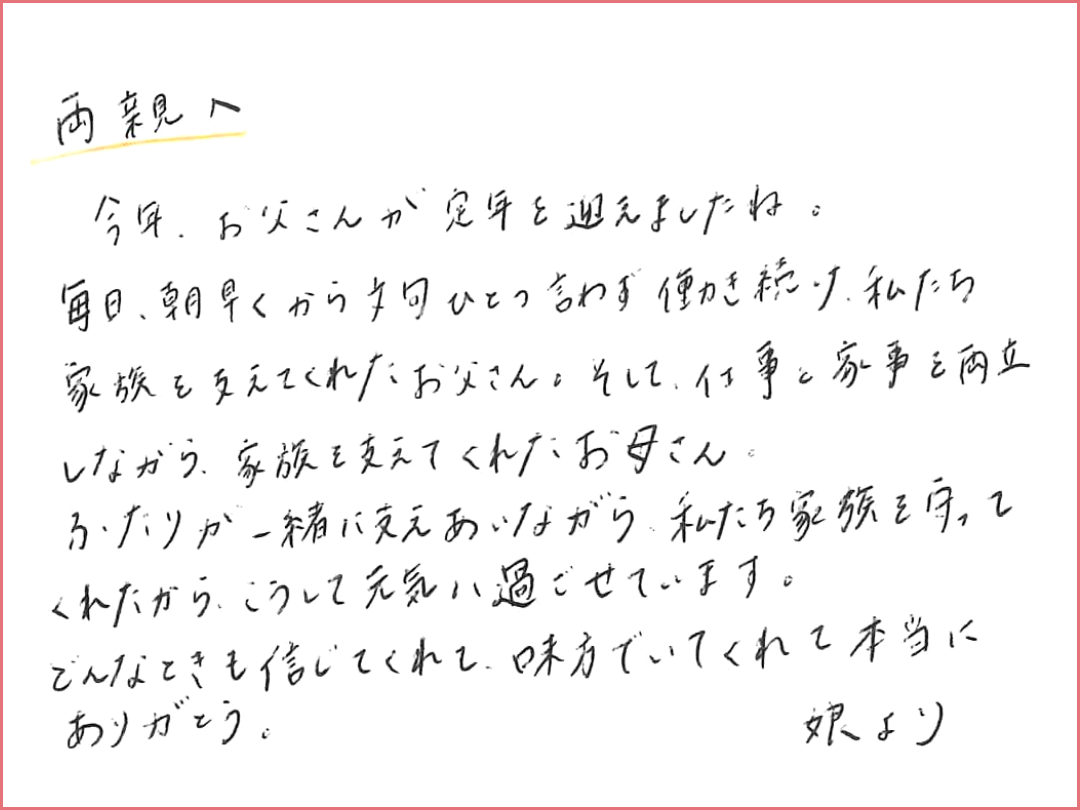 両親へ
今年、お父さんが定年を迎えましたね。
毎日、朝早くから文句ひとつ言わず働き続け、私たち
家族を支えてくれたお父さん。そして、仕事と家事を両立
しながら、家族を支えてくれたお母さん。
ふたりが一緒に支えあいながら、私たち家族を守って
くれたから、こうして元気に過ごせています。
どんなときも信じてくれて、味方でいてくれて本当に
ありがとう。
娘より